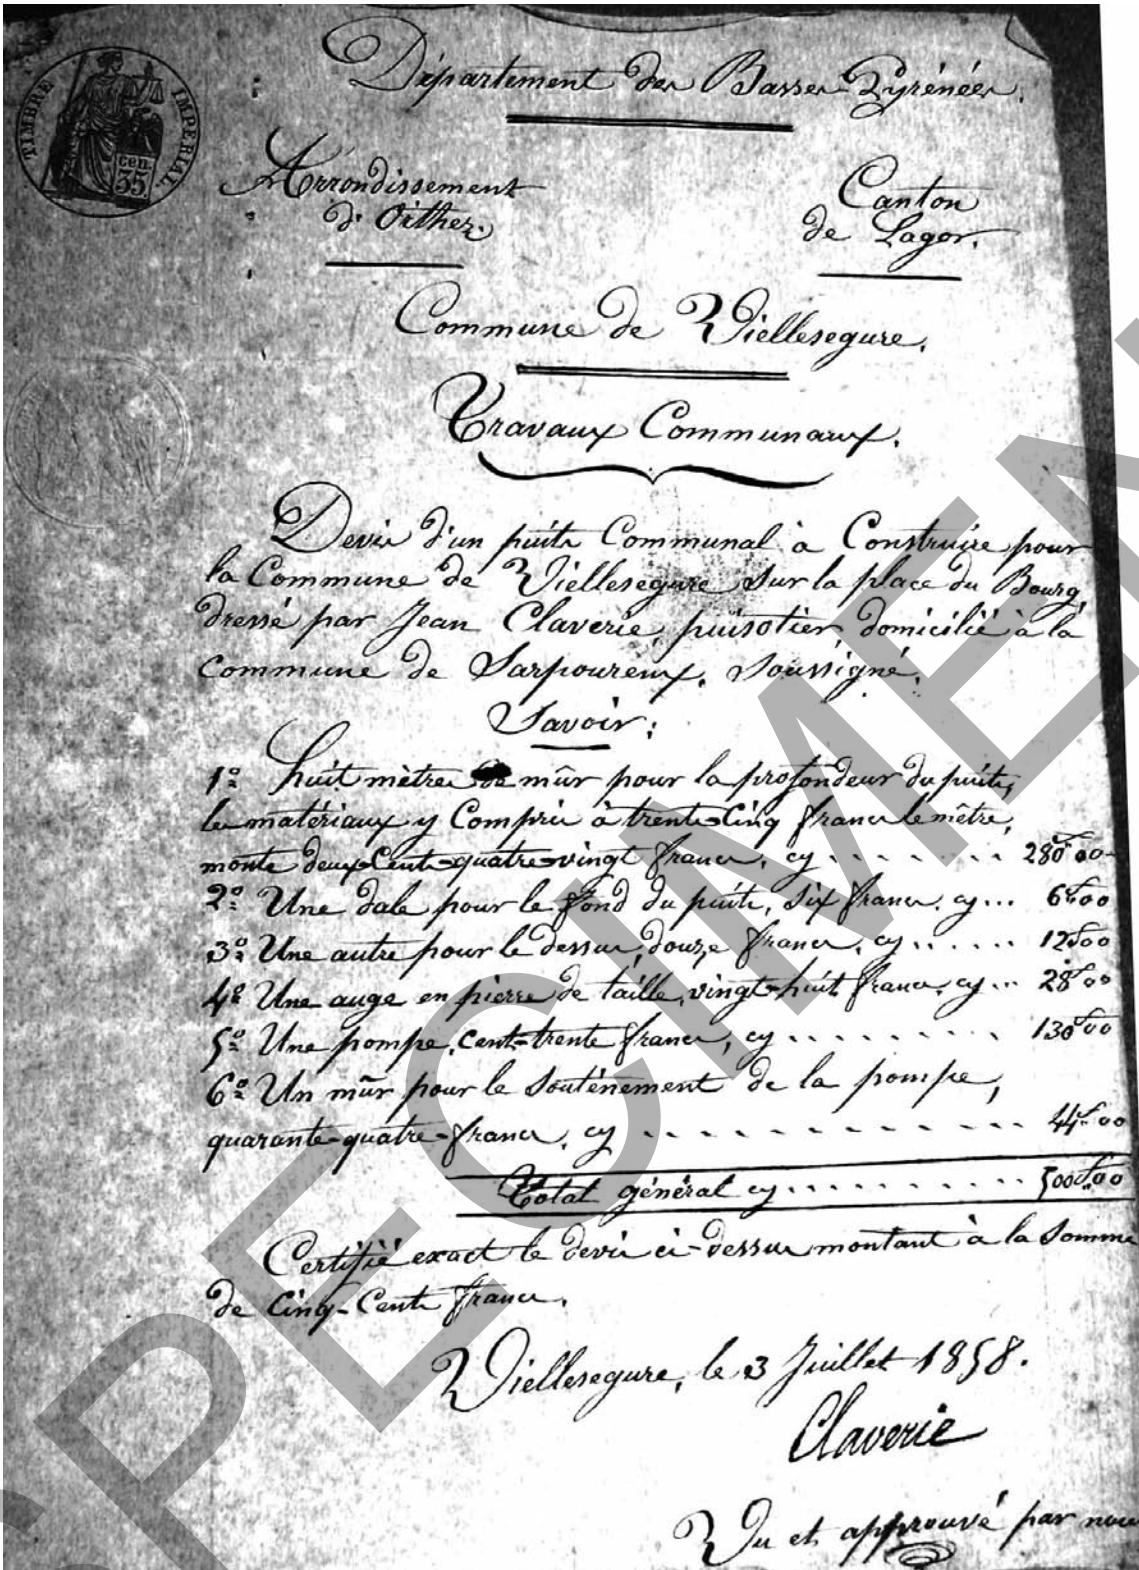 TIMBRE IMPERIAL
cen.
35
Département des Basses-Pyrénées.
Arrondissement
d'Orthez.
Canton
de Lagor.
Commune de Viellesegure.
Travaux Communaux.
Devis d'un puits Communal à Construire pour
la Commune de Viellesegure sur la place du Bourg,
dressé par Jean Claverie, puisotier, domicilié à la
commune de Sarpourenx, soussigné.
Savoir:
1º Huit mètres de mûr pour la profondeur du puits,
les matériaux y Compris à trente-Cinq francs le mètre,
monte deux-Cent-quatre-vingt francs, cy ........ 280f00
2º Une dale pour le fond du puits, six francs, cy... 6f00
3º Une autre pour le dessus, douze francs, cy...... 12f00
4º Une auge en pierre de taille, vingt-huit francs, cy... 28f00
5º Une pompe, cent-trente francs, cy .......... 130f00
6º Un mûr pour le souténement de la pompe,
quarante-quatre-francs, cy .............. 44f00
Total général cy........... 500f00
Certifié exact le devis ci-dessus montant à la Somme
de Cinq-Cents francs.
Viellesegure, le 3 Juillet 1858.
Claverie
Vu et approuvé par nous
SPECIMEN